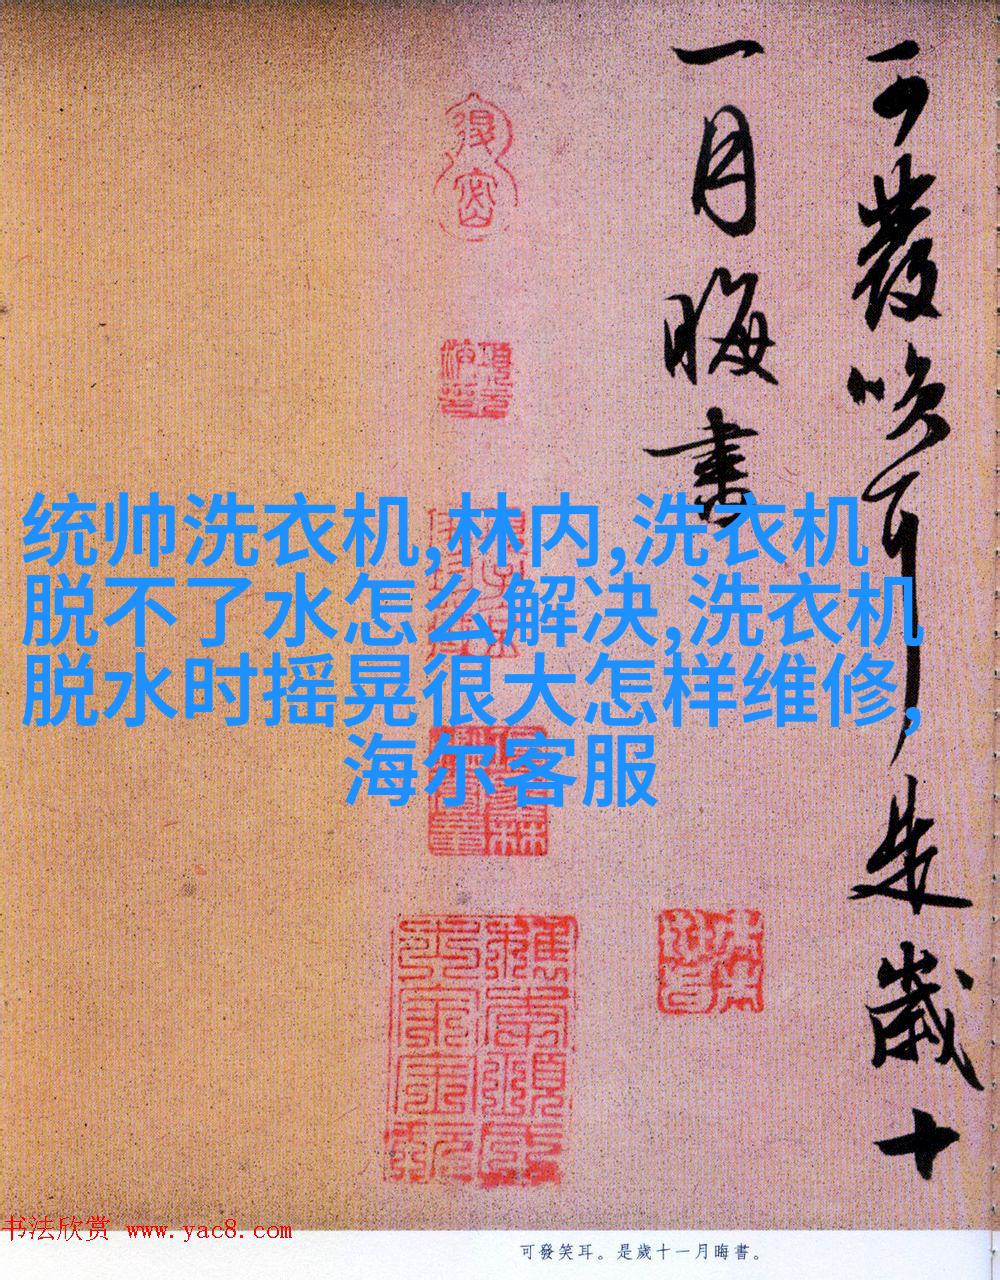 可發笑耳是歲十
一月晦書
统帅洗衣机,林内,洗衣机
脱不了水怎么解决,洗衣机
脱水时摇晃很大怎样维修,
海尔客服
书法欣赏 www.yac8.com
可發笑耳。是歲十一月晦書。